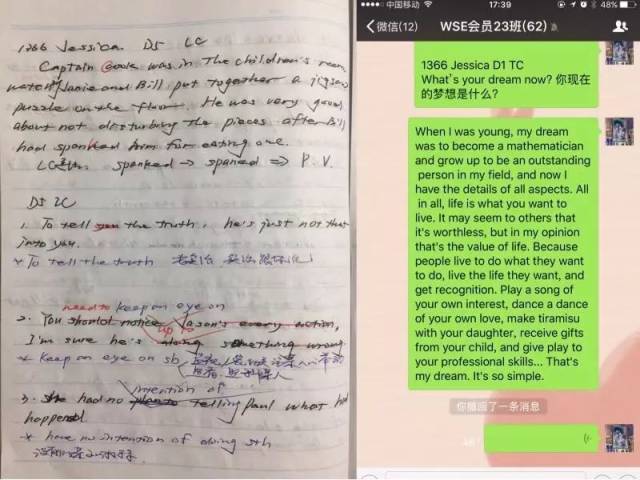 1366 Jessica. D5 LC
Captain Cook was in The children's room
watching Janie and Bill put together a jigsaw
puzzle on the floor. He was very good
about not disturbing the pieces after Bill
had spanked him for eating one.
spanked → spanked ⇒ P.V.
D5 TC
1. To tell you the truth, he's just not that
into you.
* To tell the truth
need to keep an eye on
2. You should notice Jason's every action,
up to
I'm sure he's doing something wrong.
* keep an eye on sb
intention of
3. She had no plan to telling Paul what had
happened
* have no intention of doing sth
中国移动 17:39 48%
微信(12) WSE会员23班(62)
1366 Jessica D1 TC
What's your dream now? 你现在
的梦想是什么?
When I was young, my dream
was to become a mathematician
and grow up to be an outstanding
person in my field, and now I
have the details of all aspects. All
in all, life is what you want to
live. It may seem to others that
it's worthless, but in my opinion
that's the value of life. Because
people live to do what they want
to do, live the life they want, and
get recognition. Play a song of
your own interest, dance a dance
of your own love, make tiramisu
with your daughter, receive gifts
from your child, and give play to
your professional skills... That's
my dream. It's so simple.
你撤回了一条消息